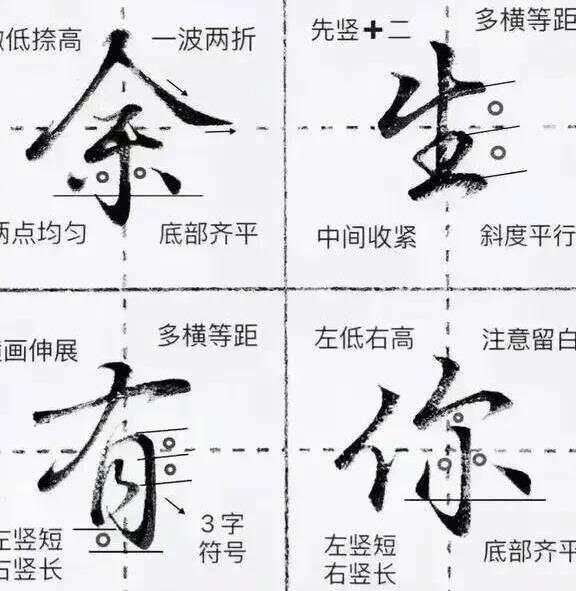 撇低捺高
一波两折
余
两点均匀
底部齐平
先竖+二
多横等距
生
中间收紧
斜度平行
横画伸展
多横等距
有
左竖短
右竖长
3字
符号
左低右高
注意留白
你
左竖短
右竖长
底部齐平